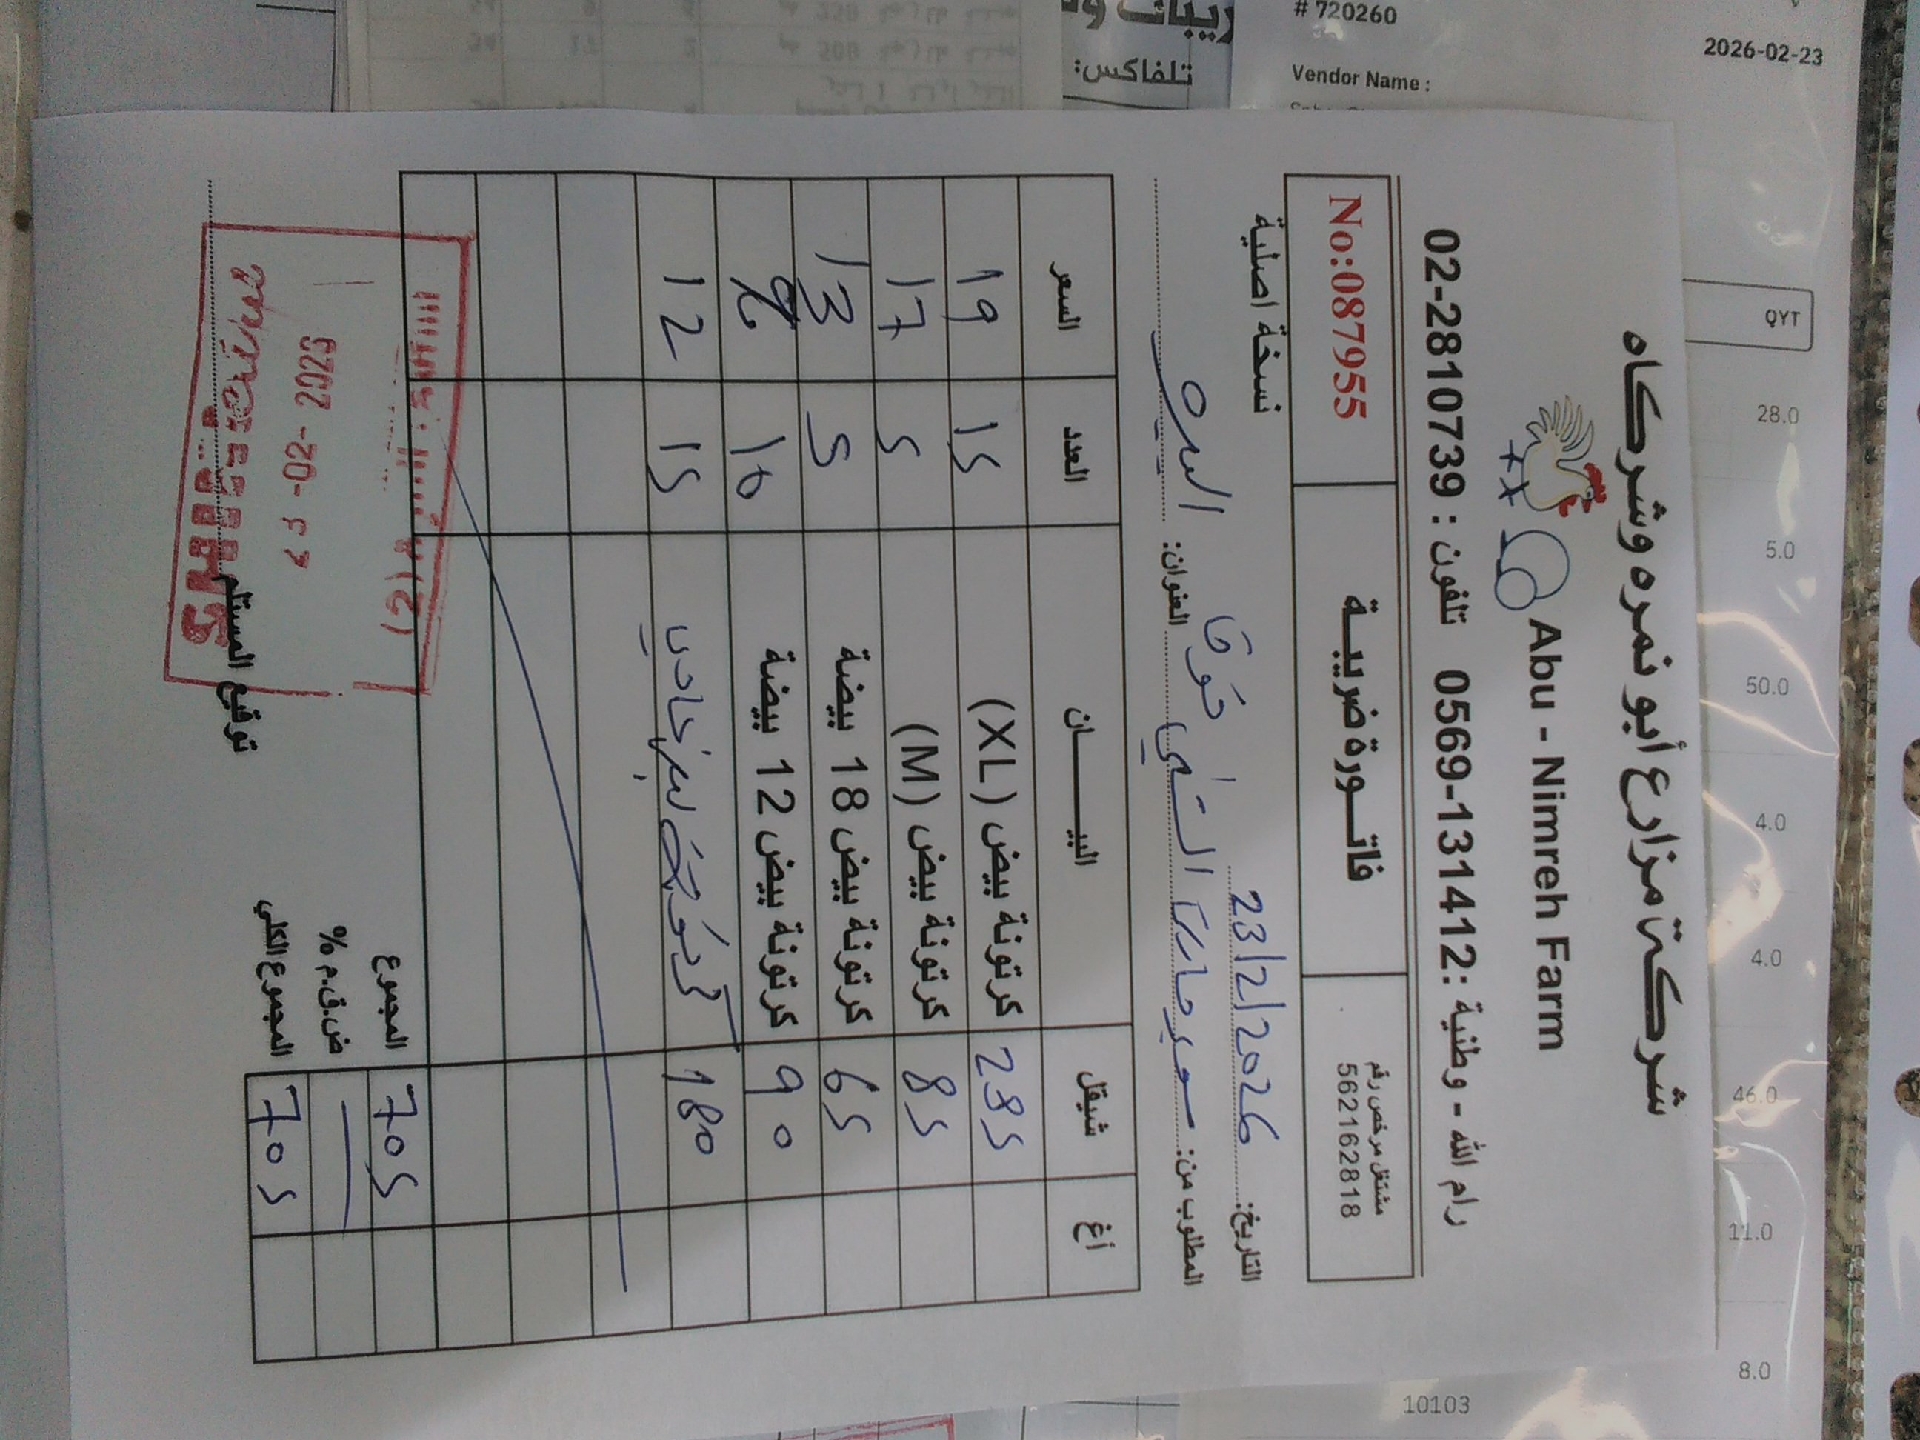 شركة مزارع أبو نمره وشركاه
Abu - Nimreh Farm
رام الله - وطنية : 0569-131412 تلفون : 02-2810739
مشتغل مرخص رقم
562162818
فاتـورة ضريبـة
No:087955
نسخة اصلية
التاريخ: 23/2/2026
المطلوب من: سوبر ماركت الشني فوق العنوان: البيره
أغ شيقل البيـــــان العدد السعر
285 كرتونة بيض (XL) 15 19
85 كرتونة بيض (M) 5 17
65 كرتونة بيض 18 بيضة 5 13
90 كرتونة بيض 12 بيضة 10 9
180 15 12
المجموع 705
ض.ق.م %
المجموع الكلي 705
توقيع المستلم
(2)
23-02-2026
# 720260
2026-02-23
Vendor Name :
تلفاكس:
QYT
28.0
5.0
50.0
4.0
4.0
46.0
11.0
8.0
10103